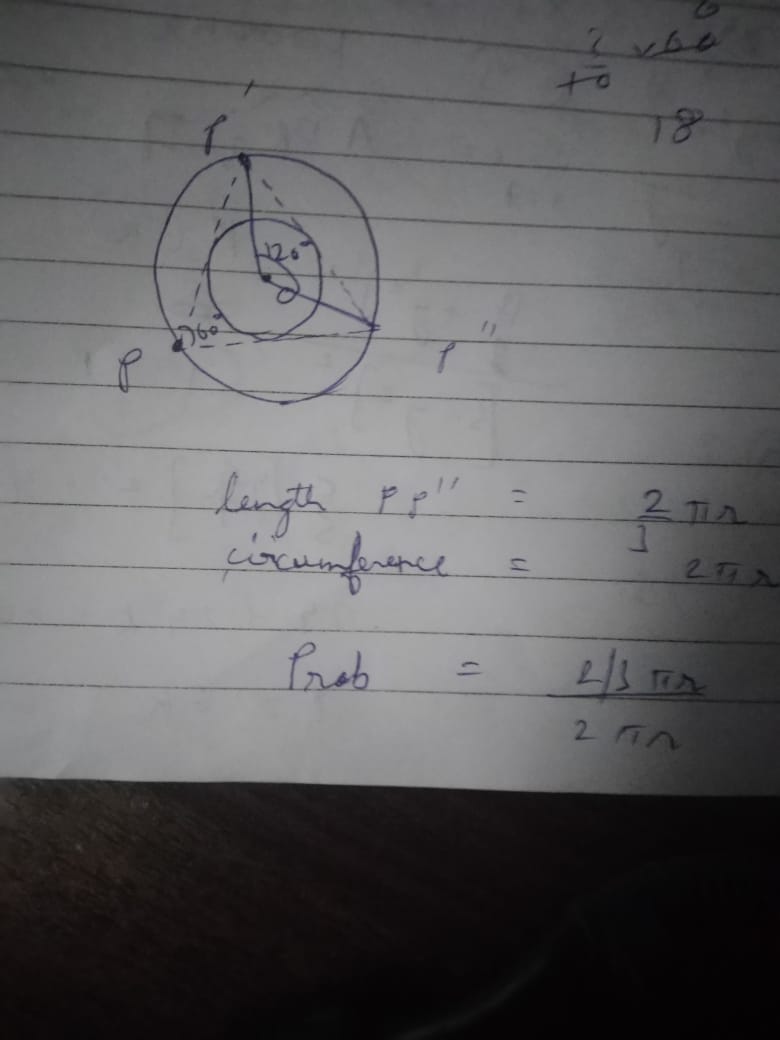 18
P'
120°
O
60°
P
P"
length PP" = 2/3 πr
circumference = 2πr
Prob = 2/3 πr
2πr